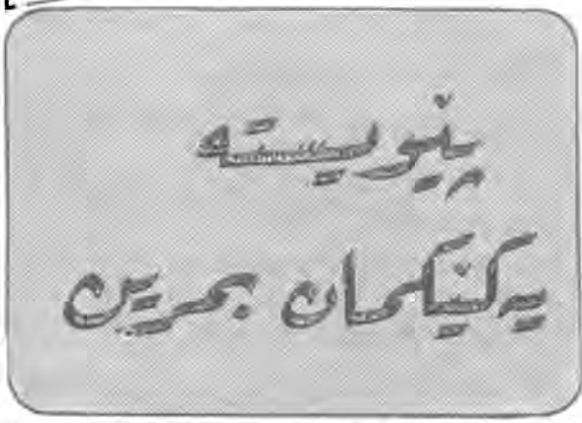 پێویستە
یەکێکمان بمرین